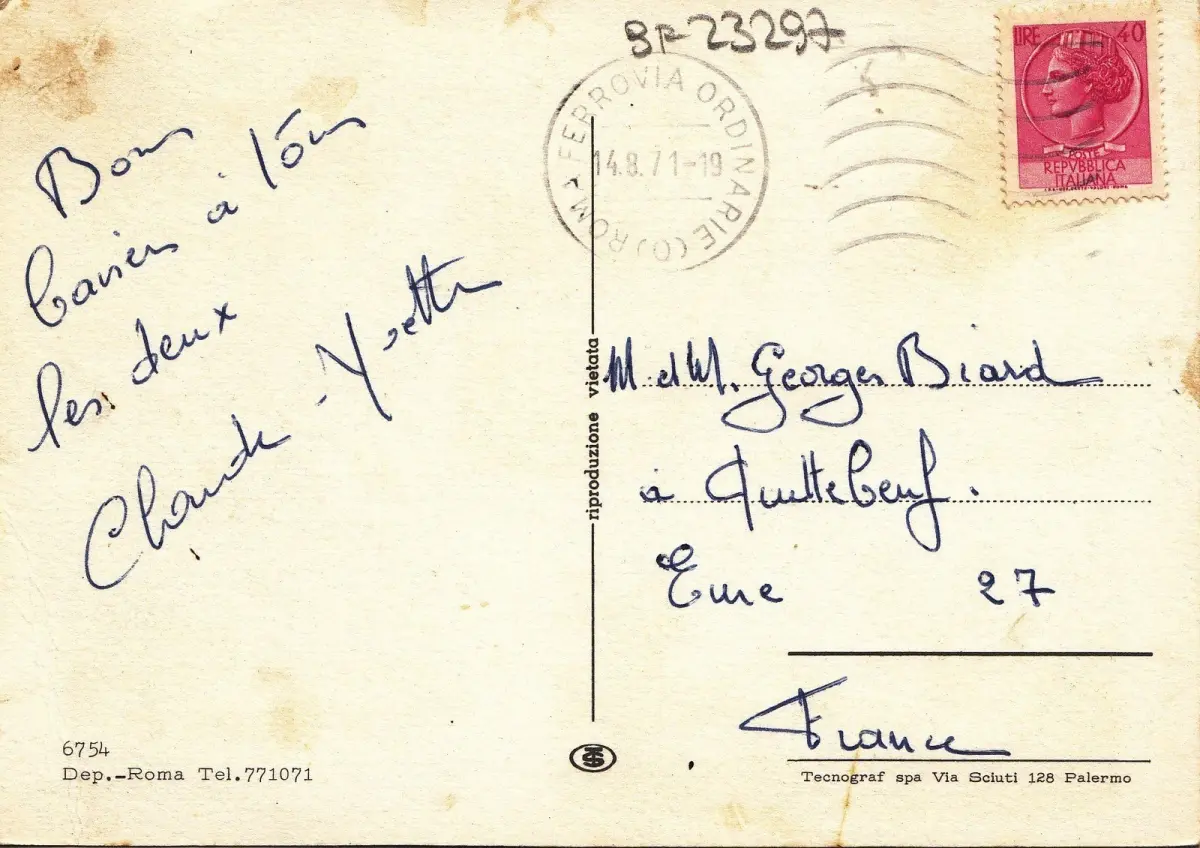 BF 23297
ROMA FERROVIA ORDINARIE (O)
14.8.71-19
LIRE 40
POSTE
REPVBBLICA
ITALIANA
Bons
baisers à tous
les deux
Claude - Yvette
riproduzione vietata
M et M. Georges Biard
à Quittebeuf.
Eure 27
France
6754
Dep.-Roma Tel.771071
Tecnograf spa Via Sciuti 128 Palermo